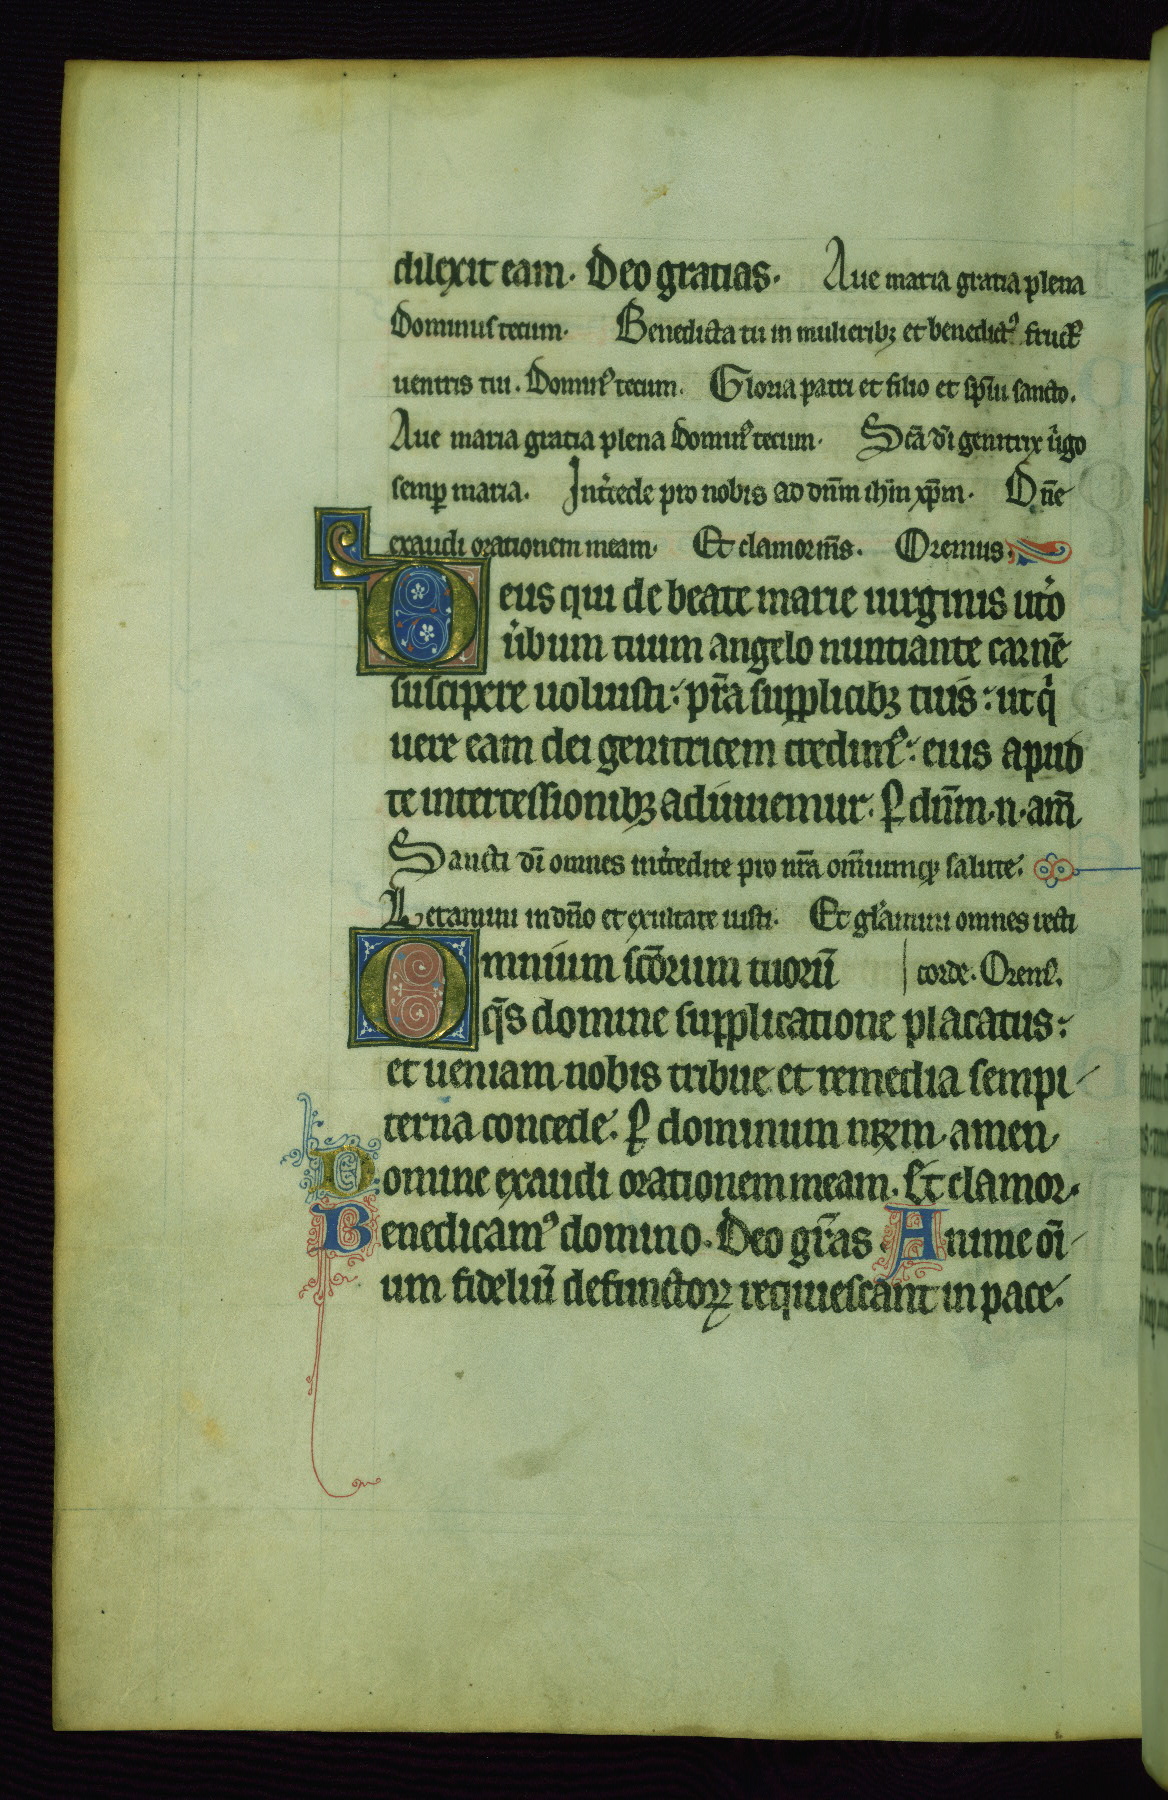 dilexit eam. Deo gratias. Aue maria gratia plena
Dominus tecum. Benedicta tu in mulieribꝫ et benedictꝰ fructꝰ
uentris tui. Dominꝰ tecum. Gloria patri et filio et sp̄iu sancto.
Aue maria gratia plena Dominꝰ tecum. Sc̄a dī genitrix uͥgo
semꝑ maria. Int̾cede pro nobis ad dn̄m ih̄m xp̄m. Dn̄e
exaudi orationem meam. Et clamor m̄s. Oremus.
Deus qui de beate marie uirginis ut̾o
u̾bum tuum angelo nuntiante carnē
suscipere uoluisti: pr̄a supplicibꝫ tuis: ut qͥ
uere eam dei genitricem credimꝰ: eius apud
te intercessionibꝫ adiuuemur. ꝑ dn̄m. n. am̄
Sancti dī omnes int̾cedite pro nr̄a om̄iumqꝫ salute.
Letamini in dn̄o et exultate iusti. Et gl̄amini omnes recti
Omnium sc̄orum tuorū corde. Oremꝰ.
q̄s domine supplicatione placatus:
et ueniam nobis tribue et remedia sempi
terna concede. ꝑ dominum nr̄m. amen
Domine exaudi orationem meam. Et clamor.
Benedicamꝰ domino. Deo gr̄as. Anime oī
um fideliū defunctoꝝ requiescant in pace.